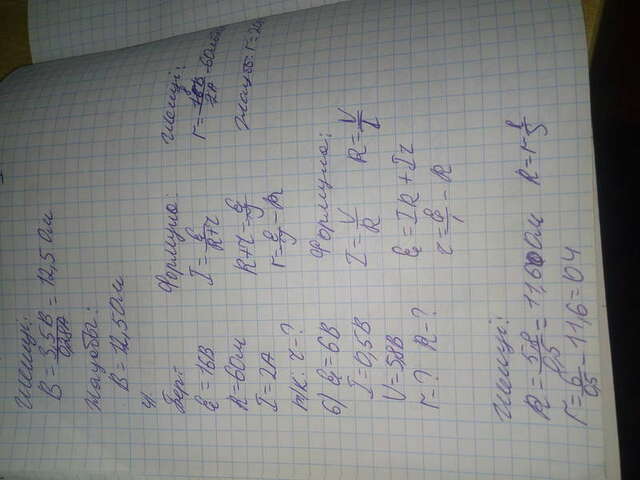 Шешуі:
B = 3,5В / 0,28А = 12,5 Ом
Жауабы:
B = 12,5 Ом
4)
Бер:
Ɛ = 16В
R = 6 Ом
I = 2А
т/к: r - ?
Формула:
I = Ɛ / R+r
R+r = Ɛ / J
r = Ɛ / J - R
Шешуі:
r = 16В / 2А - 6 Ом
Жауабы: r = 2
5) Ɛ = 6В
I = 0,5В
V = 5,8В
r = ? R - ?
Формула:
I = V / R R = V / I
Ɛ = IR + Ir
r = Ɛ / I - R
Шешуі:
R = 5,8 / 0,5 = 11,60 Ом
r = 6 / 0,5 - 11,6 = 04